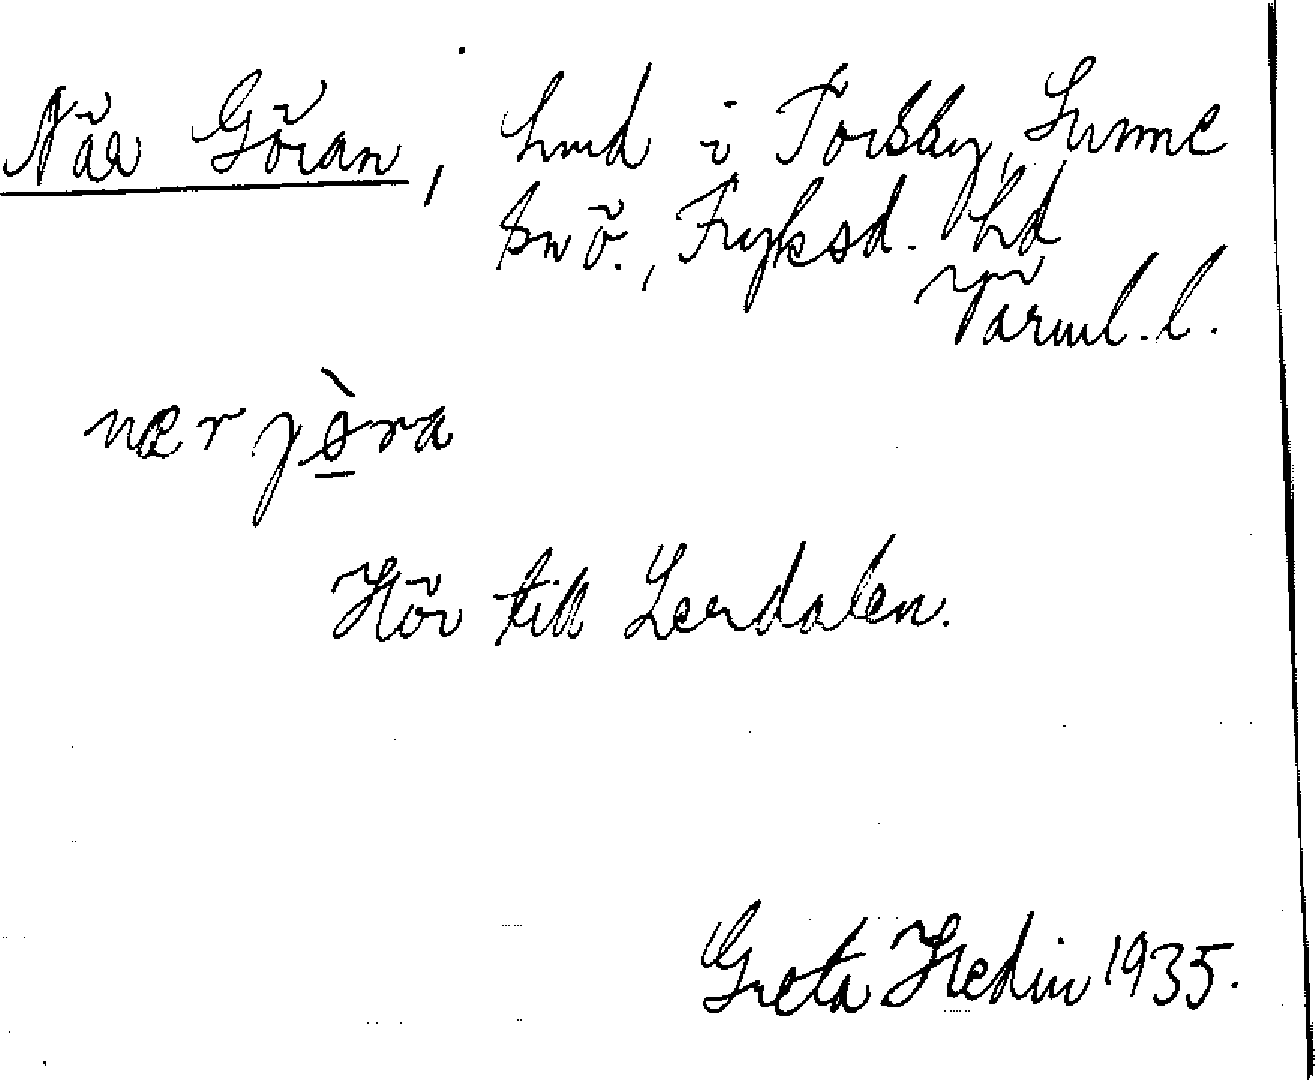 När Göran, hmd i Torsby, Sunne
sn ö., Fryksd. hd
Värml. l.
nær jö̀ra
Hör till Lerdalen.
Greta Hedin 1935.